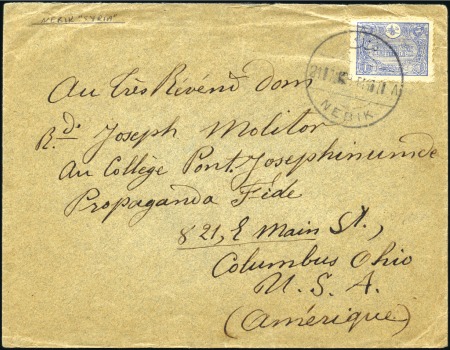 NEBIK "SYRIA"
NEBIK
Au Très Révénd Dom
R.d Joseph Molitor
au Collège Pont. Josephinum de
Propaganda Fide
821, E Main St.,
Columbus Ohio
U. S. A.
(Amérique)